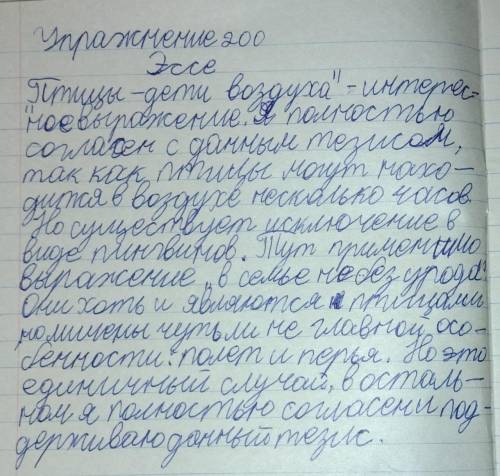 Упражнение 200
Эссе
"Птицы - дети воздуха" - интерес-
ное выражение. Я полностью
согласен с данным тезисом,
так как птицы могут нахо-
дится в воздухе несколько часов
Но существует исключение в
виде пингвинов. Тут применимо
выражение "в семье не без урода".
Они хоть и являются птицами
но лишены чуть ли не главной осо-
бенности: полёт и перья. Но это
единичный случай, в осталь-
ном я полностью согласен и под-
держиваю данный тезис.